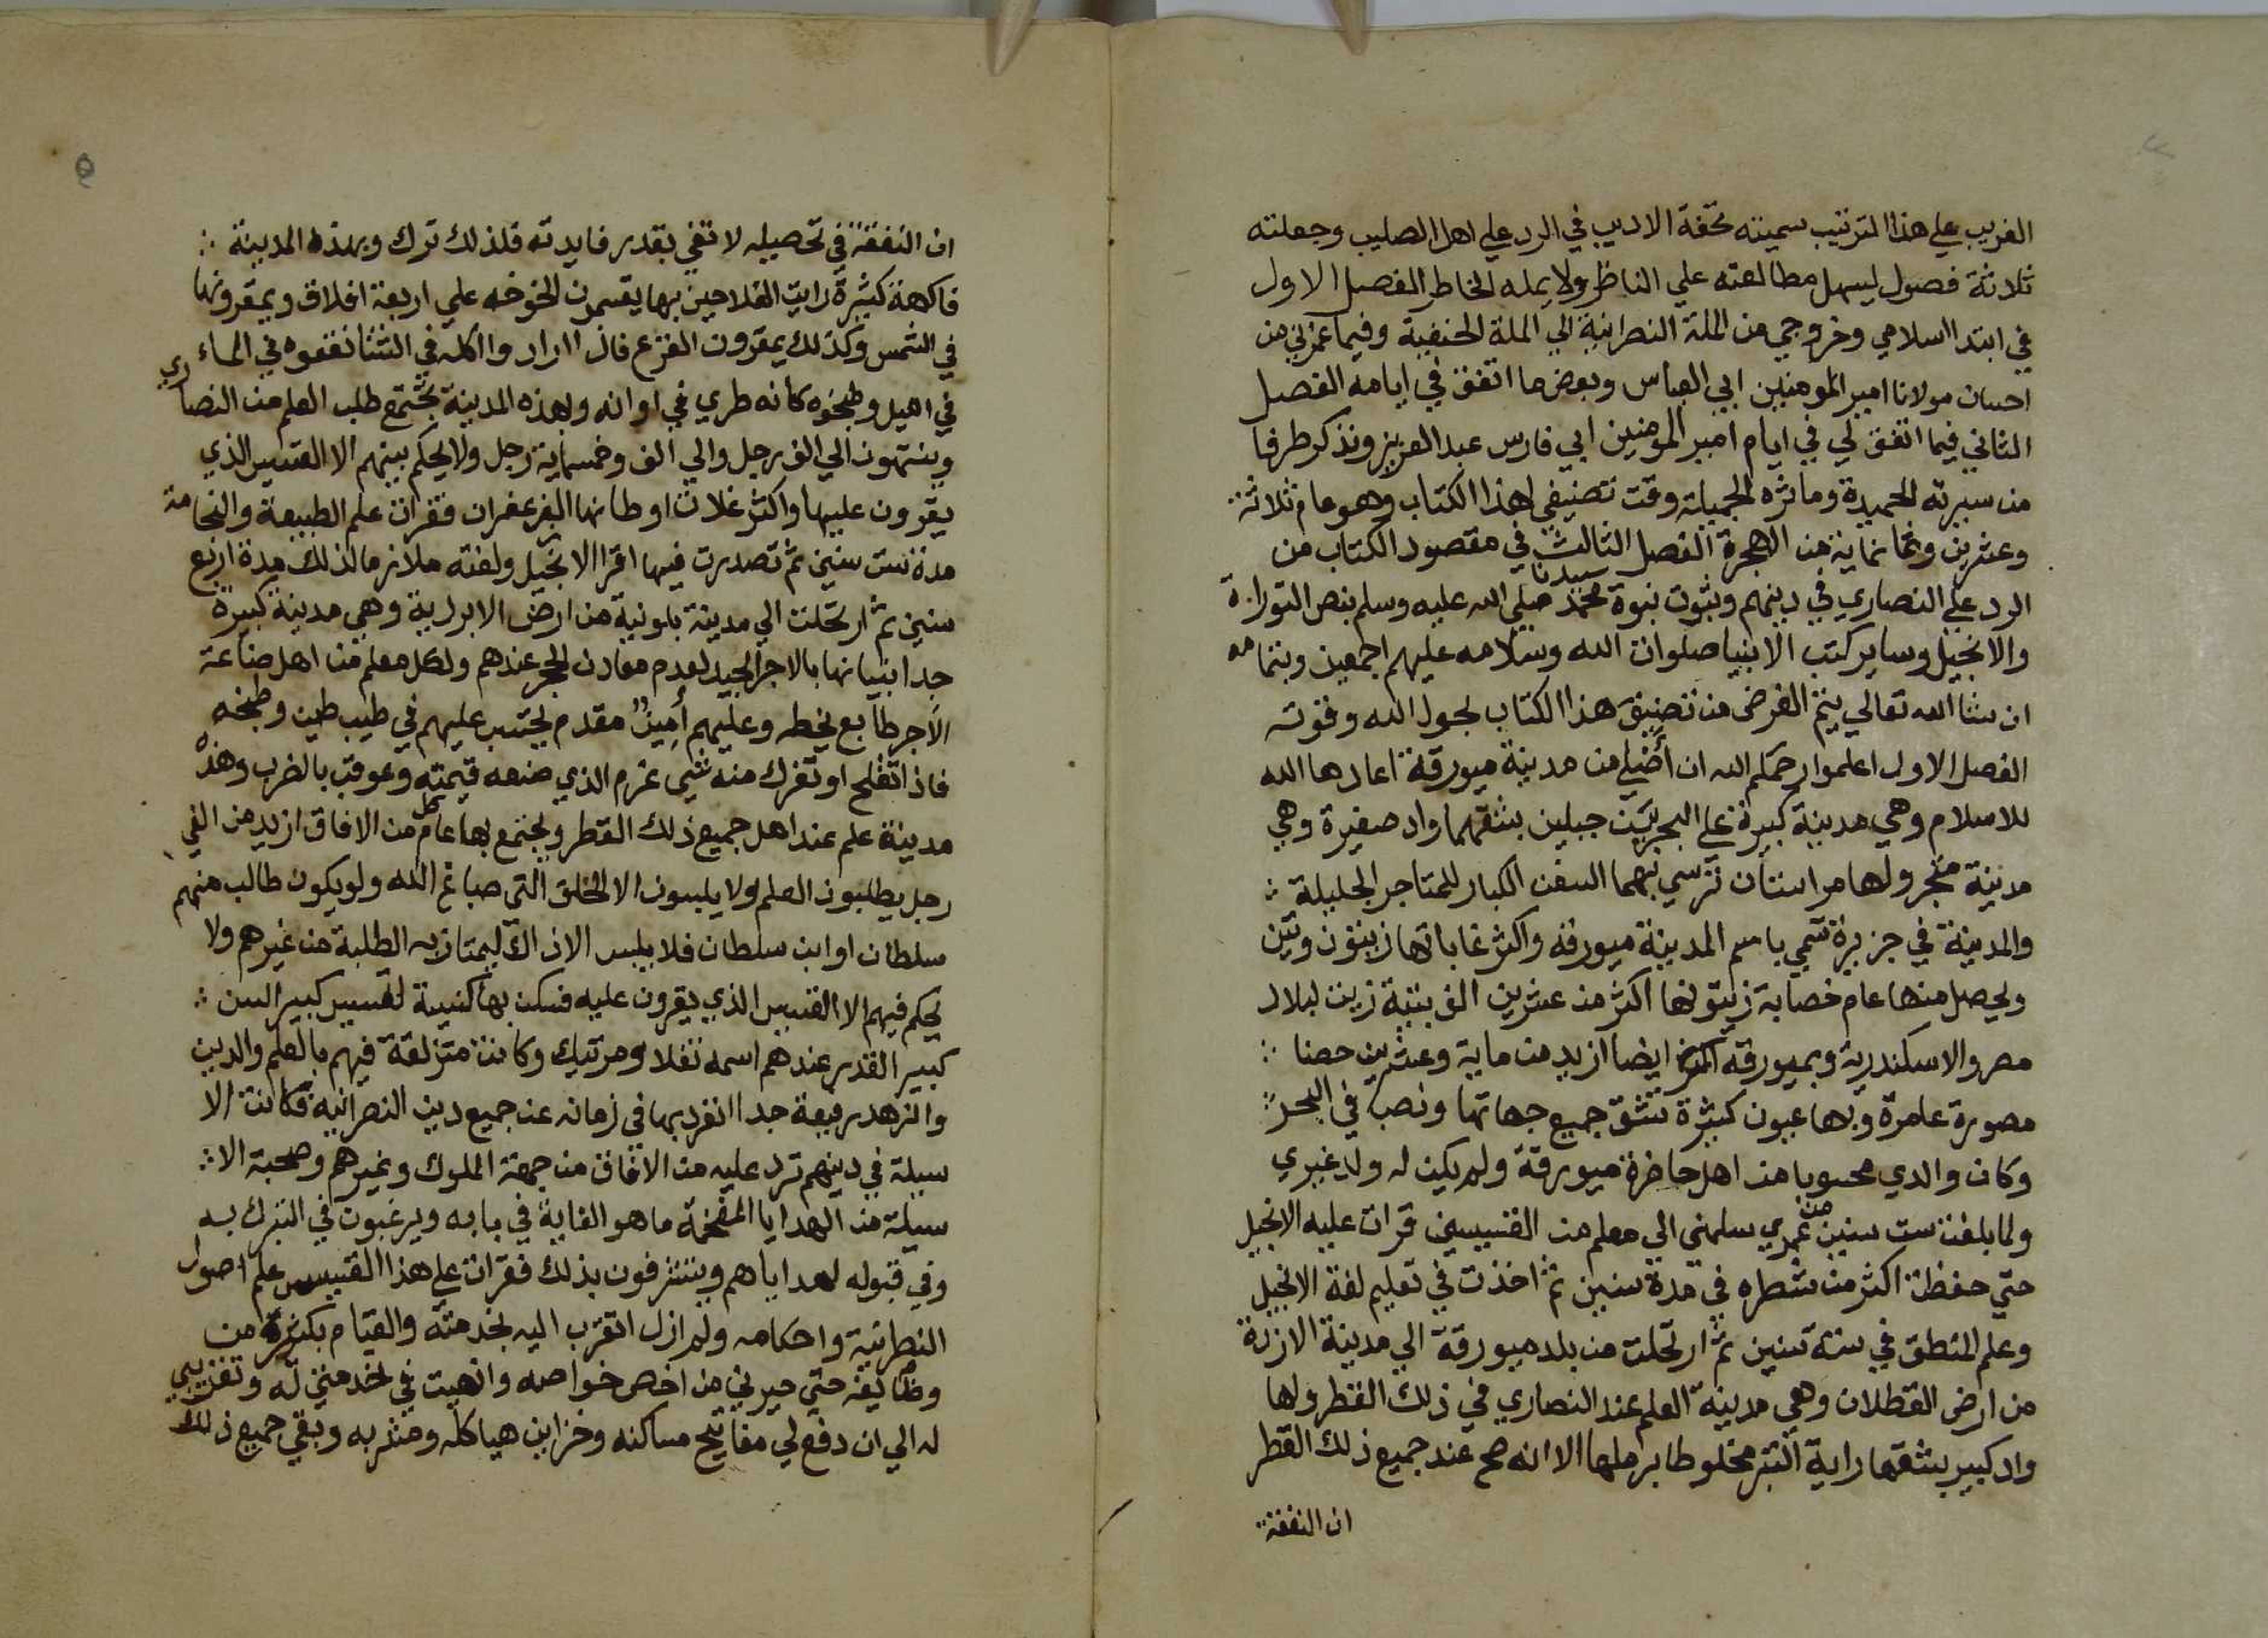 الغريب علي هذا الترتيب سميته تحفة الاديب في الرد علي اهل الصليب وجعلته
ثلاثة فصول ليسهل مطالعته علي الناظر ولا يمله الخاطر الفصل الاول
في ابتدا اسلامي وخروجي من الملة النصرانية الي الملة الحنفية وفيما غمرني من
احسان مولانا امير المومنين ابي العباس وبعض ما اتفق في ايامه الفصل
الثاني فيما اتفق لي في ايام امير المومنين ابي فارس عبد العزيز ونذكر طرفا
من سيرته الحميدة وماثره الجميلة وقت تصنيفي لهذا الكتاب وهو عام ثلاثة
وعشرين وثمانماية من الهجرة الفصل الثالث في مقصود الكتاب من
الرد علي النصاري في دينهم وثبوت نبوة سيدنا محمد صلي الله عليه وسلم بنص التوراة
والانجيل وساير كتب الانبيا صلوات الله وسلامه عليهم اجمعين وبتمامه
ان شا الله تعالي يتم الغرض من تصنيف هذا الكتاب بحول الله وقوته
الفصل الاول اعلموا رحمكم الله ان أصلي من مدينة ميورقة اعادها الله
للاسلام وهي مدينة كبيرة علي البحر بين جبلين يشقهما واد صغيرة وهي
مدينة متجر ولها مراستان ترسي بهما السفن الكبار للمتاجر الجليلة
والمدينة في جزيرة تسمي باسم المدينة ميورقة واكثر غاباتها زيتون وتين
ويحصل منها عام خصابة زيتونها اكثر من عشرين الف بتية زيت لبلاد
مصر والاسكندرية وبميورقة ايضا ازيد من ماية وعشرين حصنا
مصورة عامرة وبها عيون كثيرة تشق جميع جهاتها وتصب في البحر
وكان والدي محسوبا من اهل حاضرة ميورقة ولم يكن له ولد غيري
ولما بلغت ست سنين من عمري سلمني الي معلم من القسيسين قرات عليه الانجيل
حتي حفظت اكثر من شطره في مدة سنين ثم اخذت في تعليم لغة الانجيل
وعلم المنطق في ستة سنين ثم ارتحلت من بلد ميورقة الي مدينة الاردة
من ارض القطلان وهي مدينة العلم عند النصاري في ذلك القطر ولها
واد كبير يشقها راية التبر مخلوطا برملها الا انه صح عند جميع ذلك القطر
ان النفقة
ان النفقة في تحصيله لا تفي بقدر فايدته فلذلك ترك وبهذه المدينة
فاكهة كثيرة رايت الفلاحين بها يقسمون الخوخه علي اربعة افلاق ويمقرونها
في الشمس وكذلك يمقرون القرع فاذا ارادوا اكله في الشتا نقعوه في الماء
في اهيل وطبخوه كانه طري في اوانه وبهذه المدينة تجتمع طلب العلم من النصاري
وينتهون الي الف رجل والي الف وخمسماية رجل ولا يحكم بينهم الا القسيس الذي
يقرون عليها واكثر غلات اوطانها الزعفران فقرات علم الطبيعة والنجامة
مدة ست سنين ثم تصدرت فيها اقرا الانجيل ولغته ملازما لذلك مدة اربع
سنين ثم ارتحلت الي مدينة بلونية من ارض الابردية وهي مدينة كبيرة
جدا بنيانها بالاجر الجيد لعدم معادن الحجر عندهم ولكل معلم من اهل صناعة
الآجر طابع يخطه وعليهم أمين مقدم يحتسب عليهم في طيب طين وطبخه
فاذا تفلح او تفرك منه شي غرم الذي صنعه قيمته وعوقب بالضرب وهذه
مدينة علم عند اهل جميع ذلك القطر ويجتمع بها كل عام من الافاق ازيد من الفي
رجل يطلبون العلم ولا يلبسون الا الخلق التي صباغ الله ولو يكون طالب منهم
سلطان او ابن سلطان فلا يلبس الا ذاك ليمتاز به الطلبة من غيرهم ولا
يحكم فيهم الا القسيس الذي يقرون عليه فسكنت بها كنيسة لقسيس كبير السن
كبير القدر عندهم اسمه نقلاو مرتيك وكانت متزلقة فيهم بالعلم والدين
والزهد رفيعة جدا انفرد بها في زمانه عند جميع دين النصرانية فكانت الا
سيلة في دينهم ترد عليه من الافاق من جهة الملوك وغيرهم وصحبة الا
سيلة من الهدايا المفخمة ما هو الغاية في بابه ويرغبون في التبرك به
وفي قبوله لهداياهم ويتشرفون بذلك فقرات علي هذا القسيس علم اصول
النصرانية واحكامه ولم ازل اتقرب اليه بخدمته والقيام بكثرة من
وظايفه حتي صيرني من اخص خواصه وانهيت في خدمتي له وتقربي
له الي ان دفع لي مفاتيح مساكنه وخزاين هياكله ومشربه وبقي جميع ذلك